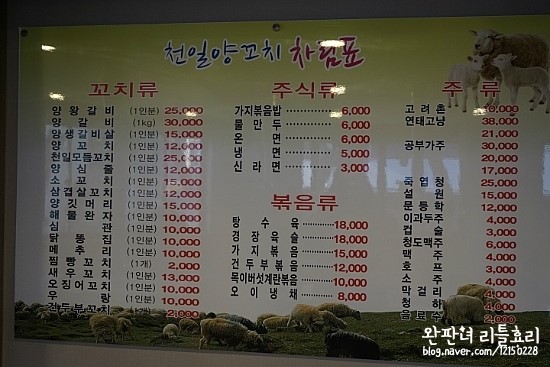 천일양꼬치 차림표
꼬치류
양 왕 갈 비 (1인분) 25,000
양 갈 비 (1kg) 30,000
양 생 갈 비 살 (1인분) 15,000
양 꼬 치 (1인분) 12,000
천일모듬꼬치 (1인분) 25,000
양 심 줄 (1인분)
소 꼬 치 (1인분) 12,000
삼 겹 살 꼬 치 (1인분)
양 깃 머 리 (1인분) 15,000
해 물 완 자 (1인분) 10,000
심 관 (1인분) 10,000
닭 똥 집 (1인분) 10,000
메 추 리 (1인분) 10,000
찜 빵 꼬 치 (1개) 2,000
새 우 꼬 치 (1인분) 13,000
오 징 어 꼬 치 (1인분) 10,000
우 랑 (1인분)
건두부꼬치 2,000
주식류
가지볶음밥 6,000
물 만 두 6,000
온 면 6,000
냉 면 5,000
신 라 면 3,000
볶음류
탕 수 육 18,000
경 장 육 슬 18,000
가 지 볶 음 15,000
건 두 부 볶 음 12,000
목이버섯계란볶음 10,000
오 이 냉 채 8,000
주 류
고 려 촌
연태고냥 38,000
21,000
공부가주 30,000
20,000
죽 엽 청 25,000
설 원 15,000
문 등 학 12,000
이과두주 4,000
컵 술 3,000
칭도맥주 6,000
맥 주 4,000
호 프 3,000
소 주 3,000
막 걸 리 3,000
청 하 4,000
음 료 수 2,000
완판녀 리틀효리
blog.naver.com/12150228